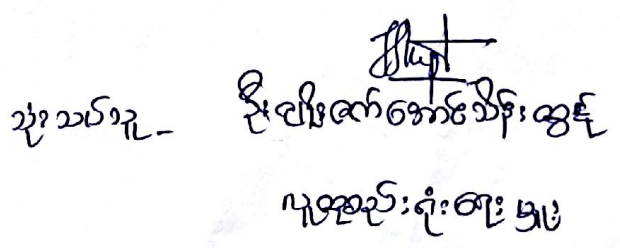 သုံးသပ်သူ - ဦးဖြိုးဇော်အောင်သိန်းထွန်း
လူထုစည်းရုံးရေးမှူး